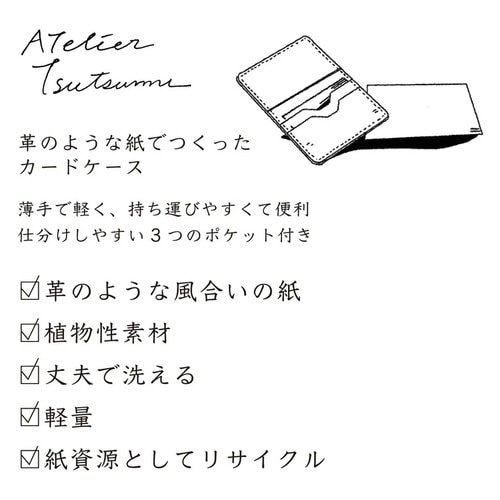 Atelier
Tsutsumu
革のような紙でつくった
カードケース
薄手で軽く、持ち運びやすくて便利
仕分けしやすい3つのポケット付き
☑革のような風合いの紙
☑植物性素材
☑丈夫で洗える
☑軽量
☑紙資源としてリサイクル